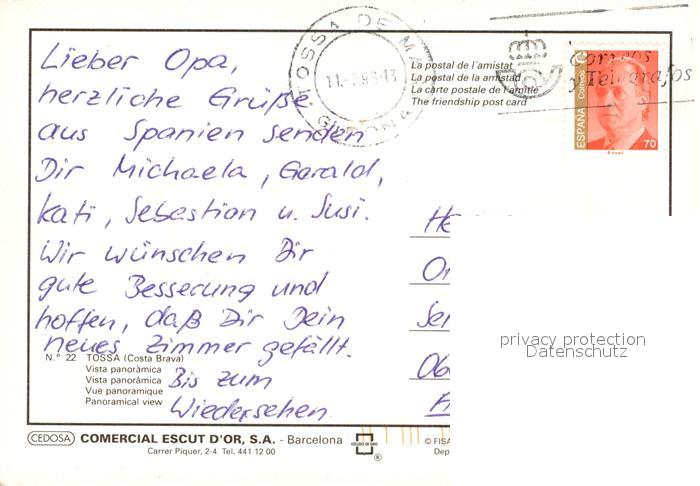 Lieber Opa,
herzliche Grüße
aus Spanien senden
Dir Michaela, Gerald,
Kati, Sebastian u. Susi.
Wir wünschen Dir
gute Besserung und
hoffen, daß Dir Dein
neues Zimmer gefällt.
Bis zum
Wiedersehen.
TOSSA DE MAR
GIRONA
La postal de l'amistat
La postal de la amistad
La carte postale de l'amitié
The friendship post card
correos
y Telégrafos
ESPAÑA Correos
70
He
Or
Sen
Obe
privacy protection
Datenschutz
N.° 22 TOSSA (Costa Brava)
Vista panoràmica
Vista panorámica
Vue panoramique
Panoramical view
CEDOSA COMERCIAL ESCUT D'OR, S.A. - Barcelona
Carrer Piquer, 2-4 Tel. 441 12 00
ESCUDO DE ORO
®
© FISA
Dep